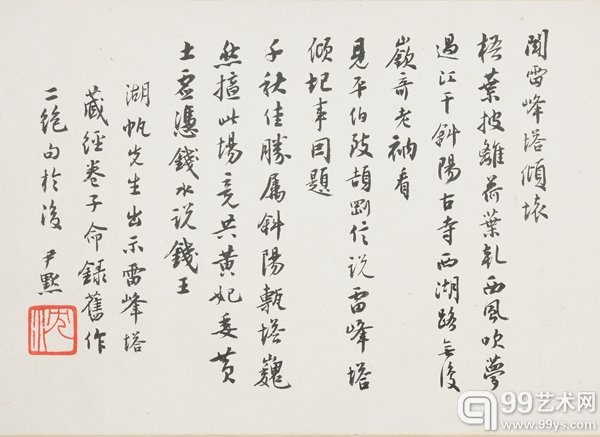 聞雷峰塔傾壞
梧葉披離荷葉乾西風吹夢
過江干斜陽古寺西湖路無復
嶔奇老衲看
見平伯致頡剛信說雷峰塔
傾圮事因題
千秋佳勝屬斜陽甎塔巍
然擅此場竟共黃妃委黃
土虛憑錢水說錢王
湖帆先生出示雷峰塔
藏經卷子命錄舊作
二絕句於後 尹默
99艺术网
www.99ys.com